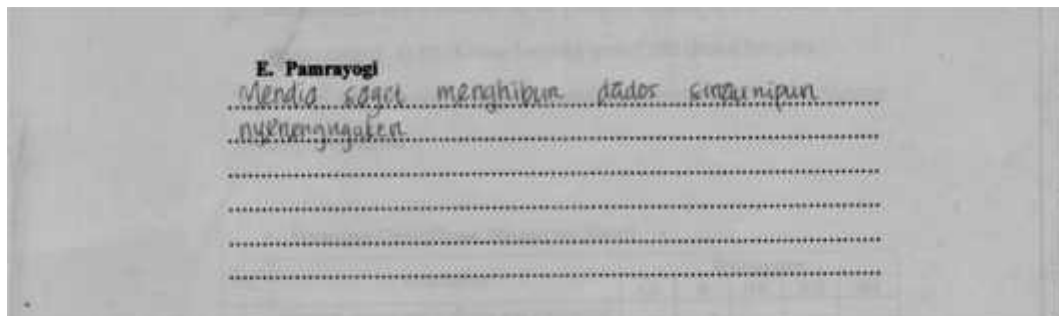 E. Pamrayogi
Mendia saget menghibur dados sinaunipun
nyenengngaken